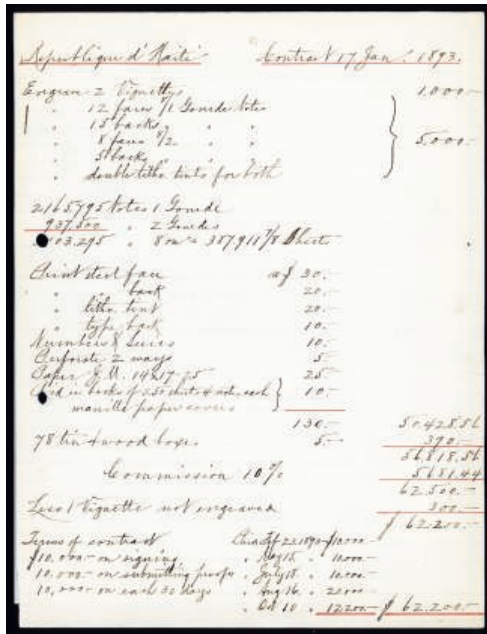 Republique d'Haiti Contract 17 Jan. 1893.
Engrave 2 Vignettes 1.000.-
" 12 faces 1/1 Gourde Notes
" 15 backs " "
" 8 faces 1/2 " 5.000.-
" 5 backs "
" double litho. tints for both
2165795 Notes 1 Gourde
937.500 " 2 Gourdes
3103.295 " 8 on = 387,911 7/8 Sheets
Print steel face a $ 30.-
" " back 20.-
" litho. tint 20.-
" type back 10.-
Numbers & Series 10.-
Perforate 2 ways 5.-
Paper 14x17-25 25-
in books of 250 sheets 4 notes each 10.-
manilla paper covers
130.- 50.428.56
78 tin & wood boxes 5.- 390.-
56818.56
Commission 10% 5681.44
62.500.-
Less 1 Vignette not engraved 300.-
$ 62.200.-
Terms of contract 23 1893 $10.000
$10.000- on signing " May 15 " 10.000.-
10.000- on submitting proofs " July 18 " 10.000.-
10,000- on each 30 days " Aug 16 " 20.000
" Oct 10 " 12200.- $ 62.200.-